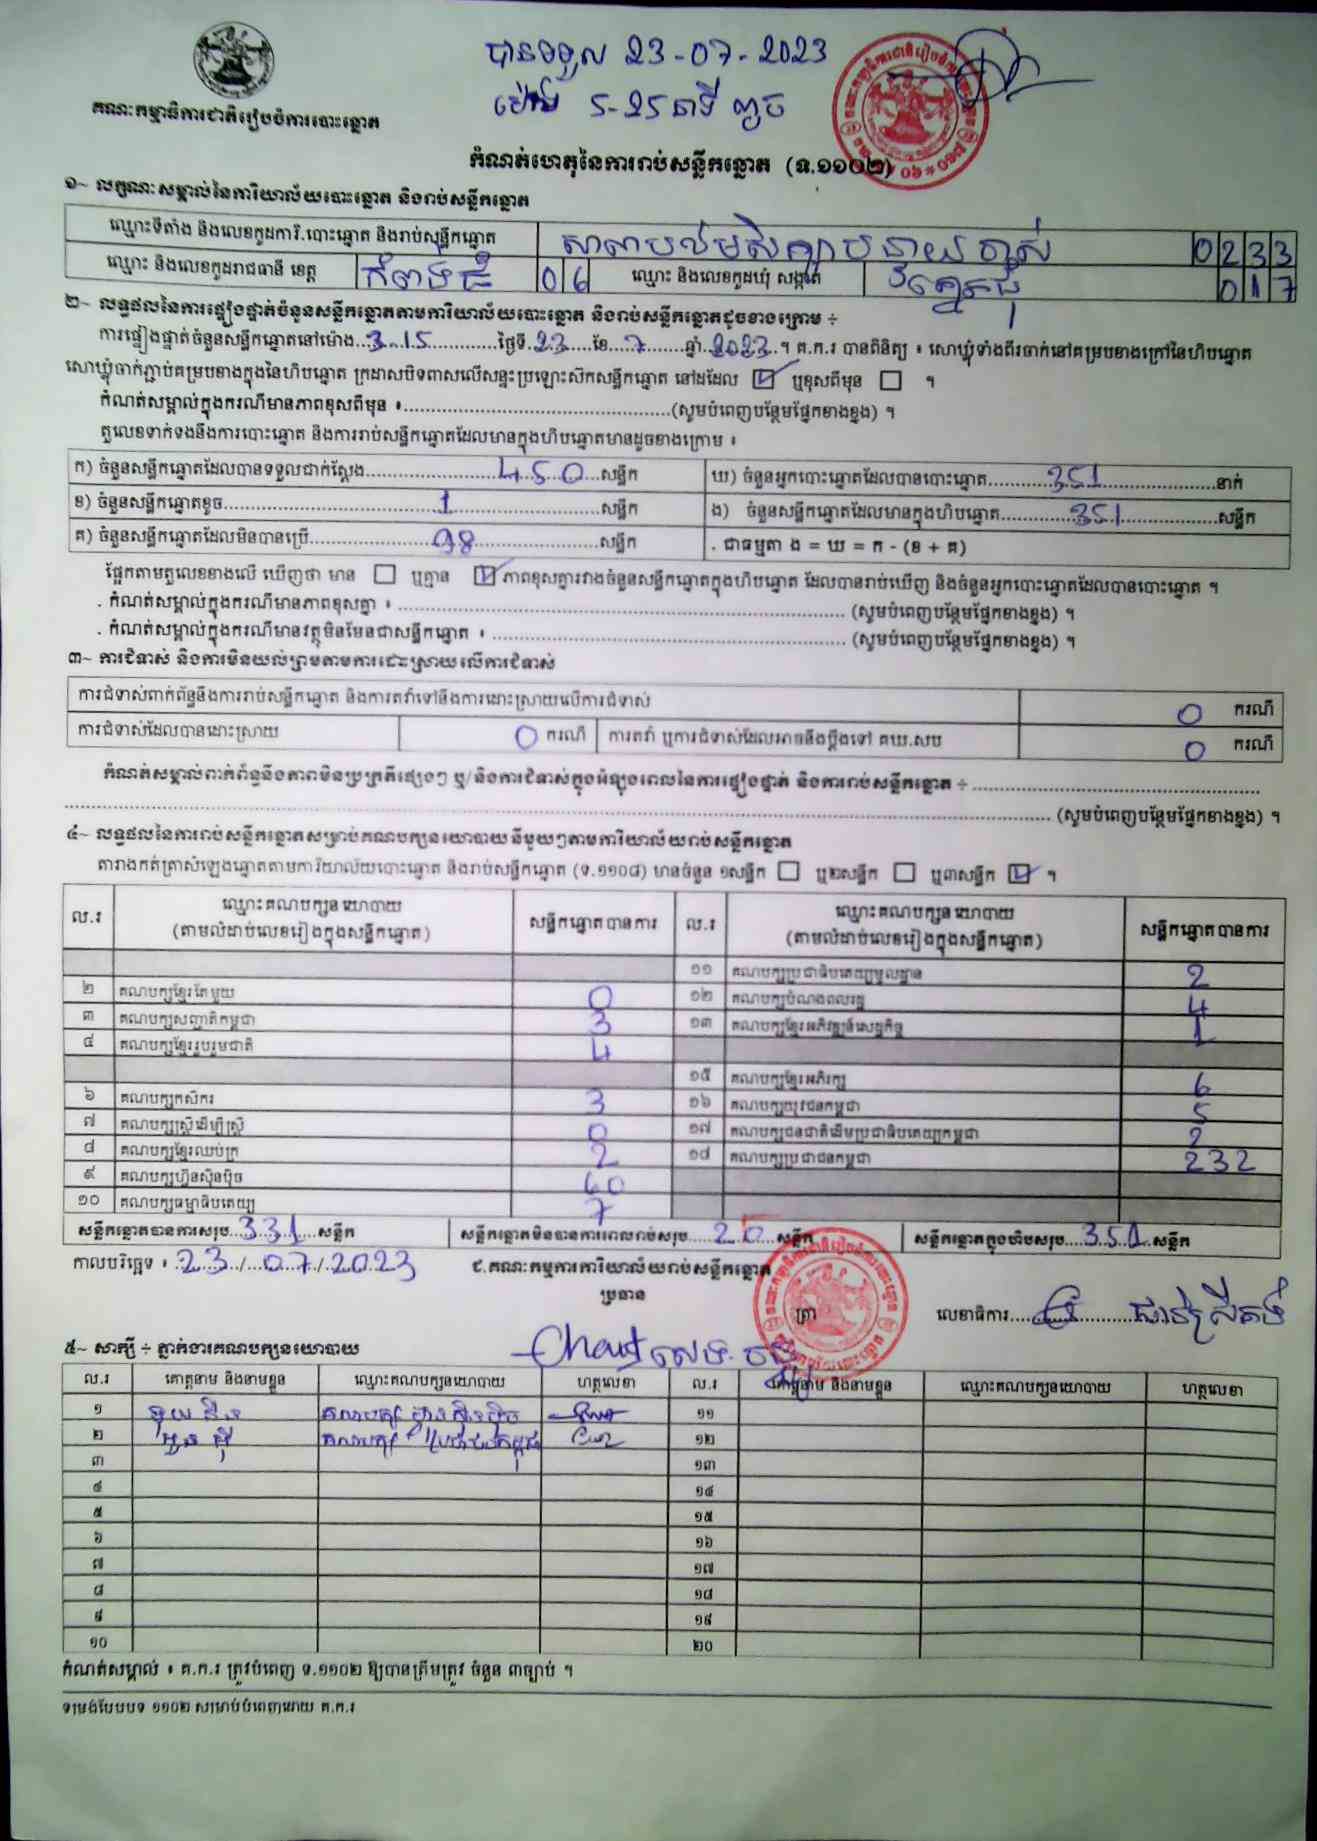 បានទទួល 23-07-2023
ម៉ោង 5-25 នាទី ល្ងាច
គណៈកម្មាធិការជាតិរៀបចំការបោះឆ្នោត
កំណត់ហេតុនៃការរាប់សន្លឹកឆ្នោត (ទ.១១០២)
១~ លក្ខណៈសម្គាល់នៃការិយាល័យបោះឆ្នោត និងរាប់សន្លឹកឆ្នោត
ឈ្មោះទីតាំង និងលេខកូដការិ.បោះឆ្នោត និងរាប់សន្លឹកឆ្នោត 0233
ឈ្មោះ និងលេខកូដរាជធានី ខេត្ត កំពង់ធំ 06 ឈ្មោះ និងលេខកូដឃុំ សង្កាត់ 017
២~ លទ្ធផលនៃការផ្ទៀងផ្ទាត់ចំនួនសន្លឹកឆ្នោតតាមការិយាល័យបោះឆ្នោត និងរាប់សន្លឹកឆ្នោតដូចខាងក្រោម ÷
ការផ្ទៀងផ្ទាត់ចំនួនសន្លឹកឆ្នោតនៅម៉ោង 3:15 ថ្ងៃទី 23 ខែ 7 ឆ្នាំ 2023 ។ គ.ក.រ បានពិនិត្យ ៖ សោឃ្លុំទាំងពីរចាក់នៅគម្របខាងក្រៅនៃហិបឆ្នោត
សោឃ្លុំចាក់ភ្ជាប់គម្របខាងក្នុងនៃហិបឆ្នោត ក្រដាសបិទពាសលើសន្ទះប្រឡោះស៊កសន្លឹកឆ្នោត នៅដដែល ☑ ឬខុសពីមុន ☐ ។
កំណត់សម្គាល់ក្នុងករណីមានភាពខុសពីមុន ៖ (សូមបំពេញបន្ថែមផ្នែកខាងខ្នង) ។
តួលេខទាក់ទងនឹងការបោះឆ្នោត និងការរាប់សន្លឹកឆ្នោតដែលមានក្នុងហិបឆ្នោតមានដូចខាងក្រោម ៖
ក) ចំនួនសន្លឹកឆ្នោតដែលបានទទួលជាក់ស្តែង 450 សន្លឹក ឃ) ចំនួនអ្នកបោះឆ្នោតដែលបានបោះឆ្នោត 351 នាក់
ខ) ចំនួនសន្លឹកឆ្នោតខូច 1 សន្លឹក ង) ចំនួនសន្លឹកឆ្នោតដែលមានក្នុងហិបឆ្នោត 351 សន្លឹក
គ) ចំនួនសន្លឹកឆ្នោតដែលមិនបានប្រើ 98 សន្លឹក . ជាធម្មតា ង = ឃ = ក - (ខ + គ)
ផ្អែកតាមតួលេខខាងលើ ឃើញថា មាន ☐ ឬគ្មាន ☑ ភាពខុសគ្នារវាងចំនួនសន្លឹកឆ្នោតក្នុងហិបឆ្នោត ដែលបានរាប់ឃើញ និងចំនួនអ្នកបោះឆ្នោតដែលបានបោះឆ្នោត ។
. កំណត់សម្គាល់ក្នុងករណីមានភាពខុសគ្នា ៖ (សូមបំពេញបន្ថែមផ្នែកខាងខ្នង) ។
. កំណត់សម្គាល់ក្នុងករណីមានវត្ថុមិនមែនជាសន្លឹកឆ្នោត ៖ (សូមបំពេញបន្ថែមផ្នែកខាងខ្នង) ។
៣~ ការជំទាស់ និងការមិនយល់ព្រមតាមការដោះស្រាយលើការជំទាស់
ការជំទាស់ពាក់ព័ន្ធនឹងការរាប់សន្លឹកឆ្នោត និងការតវ៉ាទៅនឹងការដោះស្រាយលើការជំទាស់ 0 ករណី
ការជំទាស់ដែលបានដោះស្រាយ 0 ករណី ការតវ៉ា ឬការជំទាស់ដែលអាចនឹងប្តឹងទៅ គឃ.សប 0 ករណី
កំណត់សម្គាល់ពាក់ព័ន្ធនឹងភាពមិនប្រក្រតីផ្សេងៗ ឬ/និងការជំទាស់ក្នុងអំឡុងពេលនៃការផ្ទៀងផ្ទាត់ និងការរាប់សន្លឹកឆ្នោត ÷
(សូមបំពេញបន្ថែមផ្នែកខាងខ្នង) ។
៤~ លទ្ធផលនៃការរាប់សន្លឹកឆ្នោតសម្រាប់គណបក្សនយោបាយនីមួយៗតាមការិយាល័យរាប់សន្លឹកឆ្នោត
តារាងកត់ត្រាសំឡេងឆ្នោតតាមការិយាល័យបោះឆ្នោត និងរាប់សន្លឹកឆ្នោត (ទ.១១០៨) មានចំនួន ១សន្លឹក ☐ ឬ២សន្លឹក ☐ ឬ៣សន្លឹក ☑ ។
ល.រ ឈ្មោះគណបក្សនយោបាយ (តាមលំដាប់លេខរៀងក្នុងសន្លឹកឆ្នោត) សន្លឹកឆ្នោតបានការ ល.រ ឈ្មោះគណបក្សនយោបាយ (តាមលំដាប់លេខរៀងក្នុងសន្លឹកឆ្នោត) សន្លឹកឆ្នោតបានការ
១១ គណបក្សប្រជាធិបតេយ្យមូលដ្ឋាន 2
២ គណបក្សខ្មែរតែមួយ 0 ១២ គណបក្សបំណងពលរដ្ឋ 4
៣ គណបក្សសញ្ជាតិកម្ពុជា 3 ១៣ គណបក្សខ្មែរអភិវឌ្ឍន៍សេដ្ឋកិច្ច 1
៤ គណបក្សខ្មែររួបរួមជាតិ 4
១៥ គណបក្សខ្មែរអភិរក្ស 6
៦ គណបក្សកសិករ 3 ១៦ គណបក្សយុវជនកម្ពុជា 5
៧ គណបក្សស្ត្រីដើម្បីស្ត្រី 0 ១៧ គណបក្សជនជាតិដើមប្រជាធិបតេយ្យកម្ពុជា 2
៨ គណបក្សខ្មែរឈប់ក្រ 2 ១៨ គណបក្សប្រជាជនកម្ពុជា 232
៩ គណបក្សហ្វ៊ុនស៊ិនប៉ិច 60
១០ គណបក្សធម្មាធិបតេយ្យ 7
សន្លឹកឆ្នោតបានការសរុប 331 សន្លឹក សន្លឹកឆ្នោតមិនបានការពេលរាប់សរុប 20 សន្លឹក សន្លឹកឆ្នោតក្នុងហិបសរុប 351 សន្លឹក
កាលបរិច្ឆេទ ៖ 23/07/2023 ជ.គណៈកម្មការការិយាល័យរាប់សន្លឹកឆ្នោត
ប្រធាន ត្រា លេខាធិការ
៥~ សាក្សី ÷ ភ្នាក់ងារគណបក្សនយោបាយ
ល.រ គោត្តនាម និងនាមខ្លួន ឈ្មោះគណបក្សនយោបាយ ហត្ថលេខា ល.រ គោត្តនាម និងនាមខ្លួន ឈ្មោះគណបក្សនយោបាយ ហត្ថលេខា
១ គណបក្ស ហ្វ៊ុនស៊ិនប៉ិច ១១
២ គណបក្ស ប្រជាជនកម្ពុជា ១២
៣ ១៣
៤ ១៤
៥ ១៥
៦ ១៦
៧ ១៧
៨ ១៨
៩ ១៩
១០ ២០
កំណត់សម្គាល់ ៖ គ.ក.រ ត្រូវបំពេញ ទ.១១០២ ឱ្យបានត្រឹមត្រូវ ចំនួន ៣ច្បាប់ ។
ទម្រង់បែបបទ ១១០២ សម្រាប់បំពេញដោយ គ.ក.រ